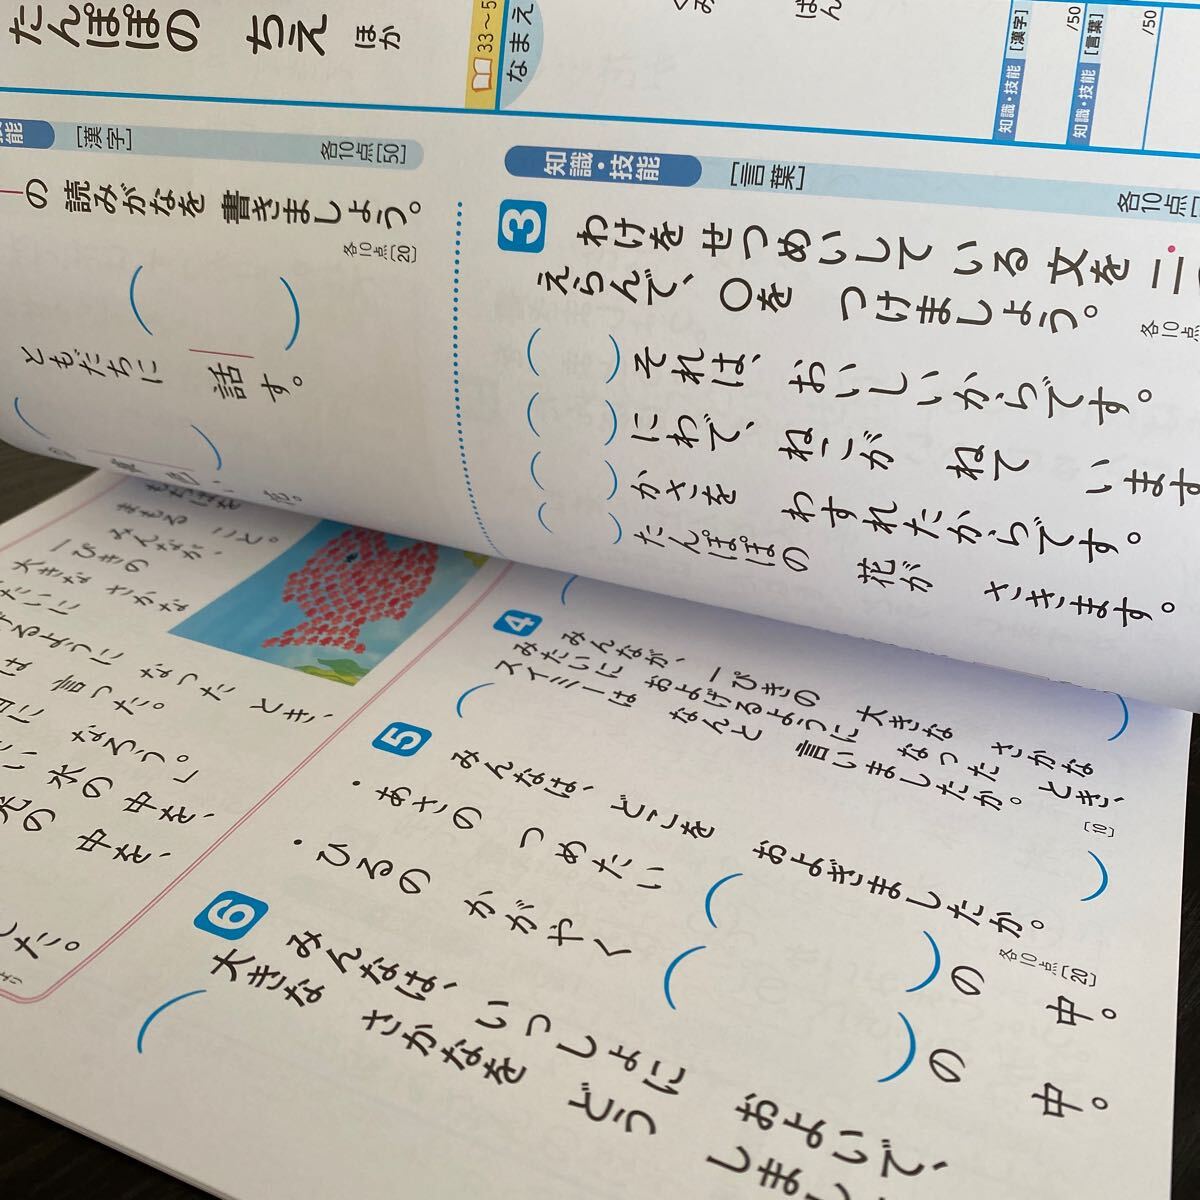 たんぽぽの ちえ ほか
33~5
なまえ
知識・技能 [漢字]
/50
知識・技能 [言葉]
/50
能
[漢字]
各10点[50]
の 読みがなを 書きましょう。
各10点[20]
ともだちに 話す。
知識・技能
[言葉]
各10点
3
わけを せつめいして いる 文を 二
えらんで、○を つけましょう。
各10点
( ) それは、おいしいからです。
( ) にわで、ねこが ねて います
( ) かさを わすれたからです。
( ) たんぽぽの 花が さきます。
4
みんなが、一ぴきの 大きな さかな
みたいに およげるように なった とき、
スイミーは なんと 言いましたか。
[10]
5
みんなは、どこを およぎましたか。
各10点[20]
・あさの つめたい ( )の 中。
・ひるの かがやく ( )の 中。
6
みんなは、いっしょに およいで、
大きな さかなを どう しまし
もちばを
まもる こと。
みんなが、
一ぴきの
大きな さかな
たいに
げるように なった とき、
は 言った。
目に なろう。」
い 水の 中を、
光の 中を、
した。